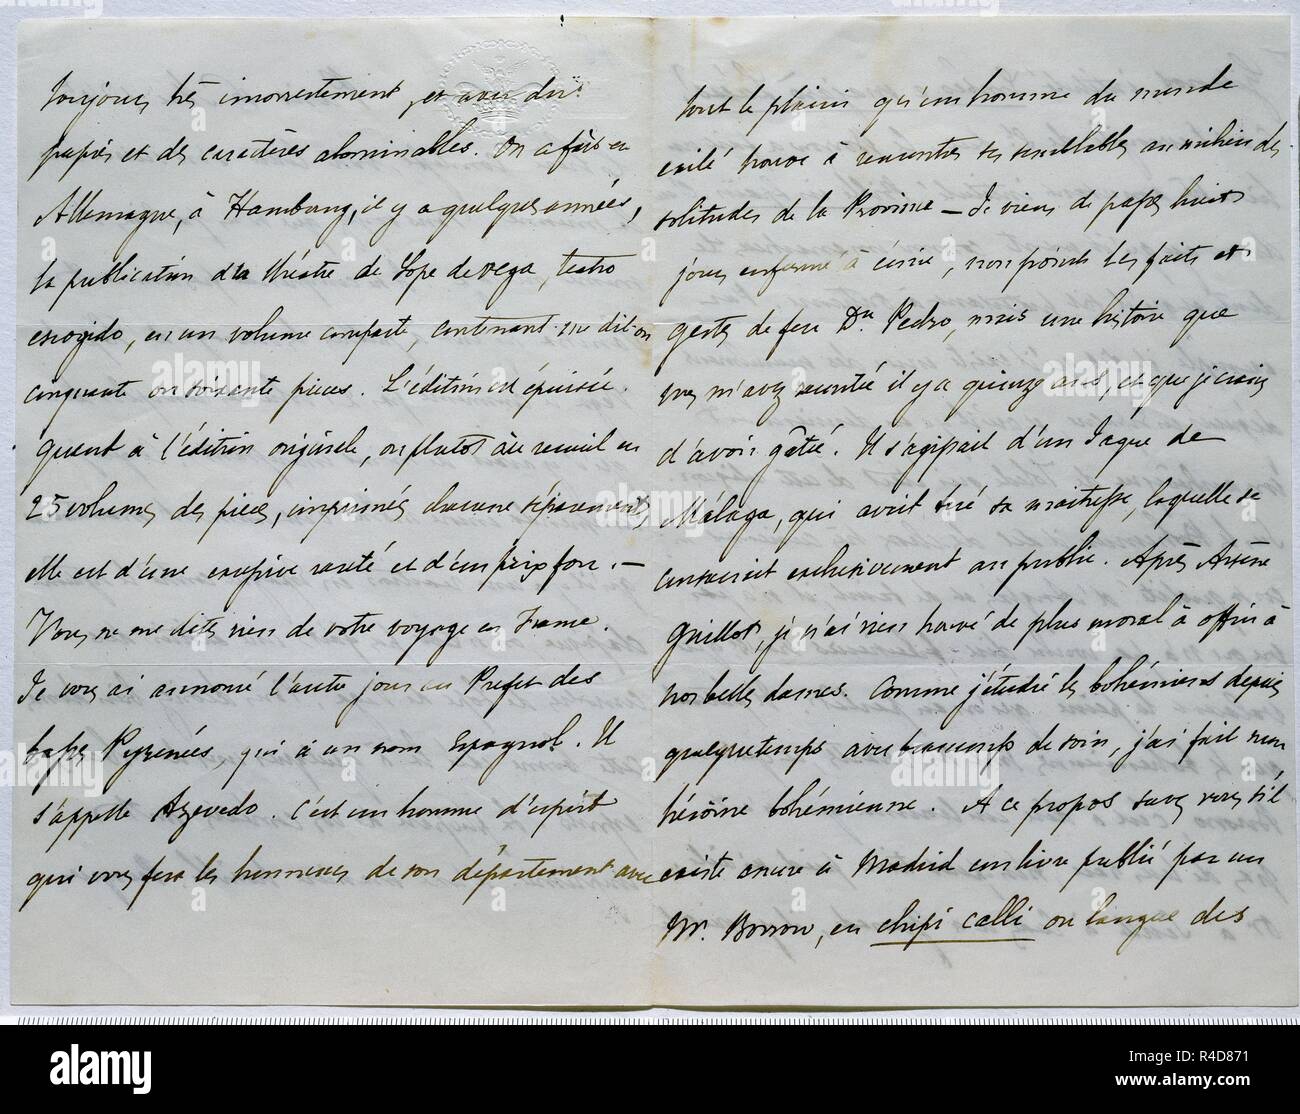 toujours très incorrectement, et avec du
papier et des caractères abominables. On a fait en
Allemagne, à Hambourg, il y a quelques années,
la publication du théatre de Lope de Vega, teatro
escogido, en un volume compacte, contenant me dit-on
cinquante ou soixante pieces. L'édition est épuisée.
Quant à l'édition originale, ou plutot au recueil en
25 volumes des pieces, imprimées chacune séparement,
elle est d'une excessive rareté et d'un prix fou. —
Vous ne me dites rien de votre voyage en France.
Je vous ai annoncé l'autre jour au Prefet des
basses Pyrenées, qui a un nom Espagnol. Il
s'appelle Azevedo. C'est un homme d'esprit
qui vous fera les honneurs de son département avec
tout le plaisir qu'un homme du monde
exilé trouve à rencontrer ses semblables au milieu des
solitudes de la Province — Je viens de passer huit
jours enfermé à écrire, non point les faits et
gestes de feu Dn Pedro, mais une histoire que
vous m'avez racontée il y a quinze ans, et que je crains
d'avoir gâtée. Il s'agissait d'un Jaque de
Málaga, qui avait tué sa maitresse, laquelle se
consacrait exclusivement au public. Après Arsène
Guillot, je n'ai rien trouvé de plus moral à offrir à
nos belles dames. Comme j'étudie les bohémiens depuis
quelque temps avec beaucoup de soin, j'ai fait mon
héroïne bohémienne. A ce propos savez vous s'il
existe encore à Madrid un livre publié par un
Mr. Borrow, en chipi calli ou langue des
alamy
alamy
Image ID: R4D871
www.alamy.com